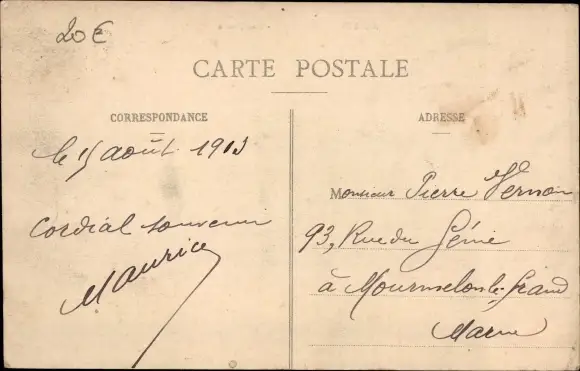 20 €
CARTE POSTALE
CORRESPONDANCE
ADRESSE
le 15 août 1913
Cordial souvenir
Maurice
Monsieur Pierre Vernon
93, Rue du Génie
à Mourmelon-le-Grand
Marne